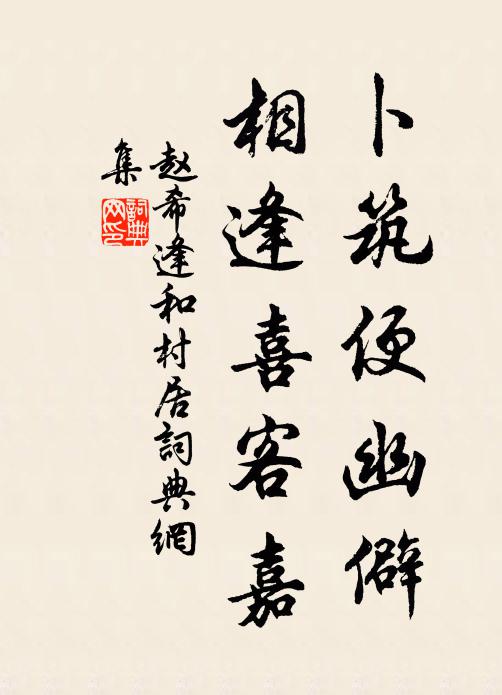 卜筑便幽僻
相逢喜客嘉
赵希逢和村居詞典網
集
詞典网印